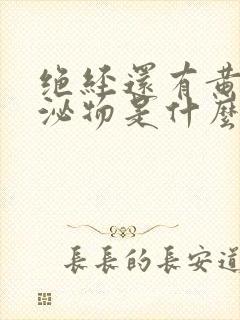 绝经還有黄
泌物是什麽
長長的長安道